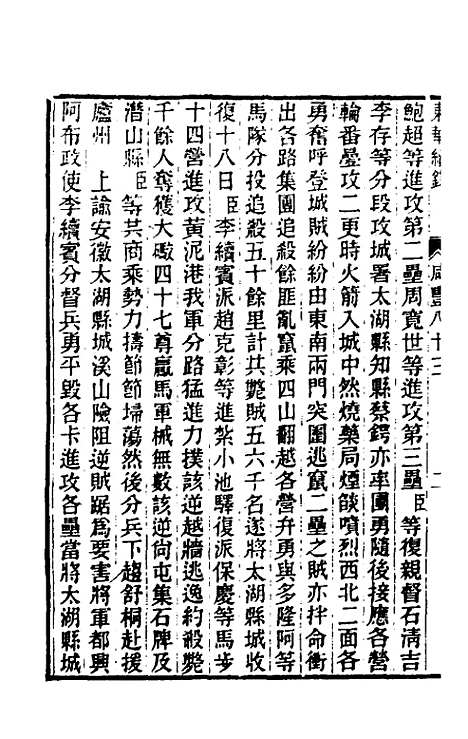 東華續錄 咸豐八十三 二
鮑超等進攻第二壘周寬世等進攻第三壘臣等復親督石清吉
李存等分段攻城署太湖縣知縣蔡鍔亦率團勇隨後接應各營
輪番疊攻二更時火箭入城中然燒藥局煙燄噴烈西北二面各
勇奮呼登城賊紛紛由東南兩門突圍逃竄二壘之賊亦拌命衝
出各路集團追殺餘匪亂竄乘四山翻越各營弁勇與多隆阿等
馬隊分投追殺五十餘里計共斃賊五六千名遂將太湖縣城收
復十八日臣李續賓派趙克彰等進紮小池驛復派保慶等馬步
十四營進攻黃泥港我軍分路猛進力撲該逆越牆逃逸約殺斃
千餘人奪獲大礮四十七尊驘馬軍械無數該逆尙屯集石牌及
潛山縣臣等其商乘勢力擣節節埽蕩然後分兵下趨舒桐赴援
廬州 上諭安徽太湖縣城溪山險阻逆賊踞爲要害將軍都興
阿布政使李續賓分督兵勇平毀各卡進攻各壘當將太湖縣城